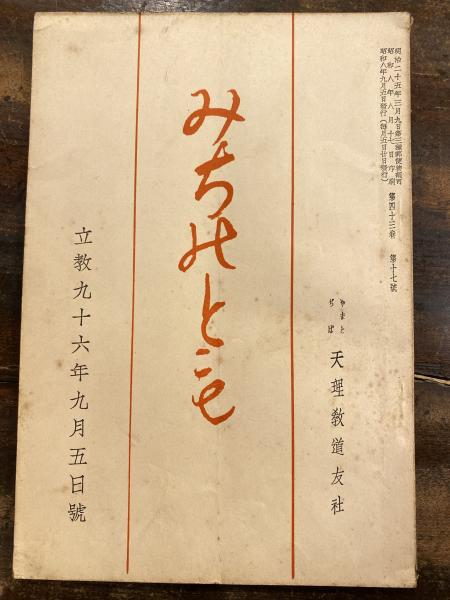 明治二十五年三月九日第三種郵便物認可
昭和八年八月十七日印刷
昭和八年九月五日發行(毎月五日廿日發行)
第四十三巻 第十七號
やまと
ぢば
天理敎道友社
みちのとも
立敎九十六年九月五日號